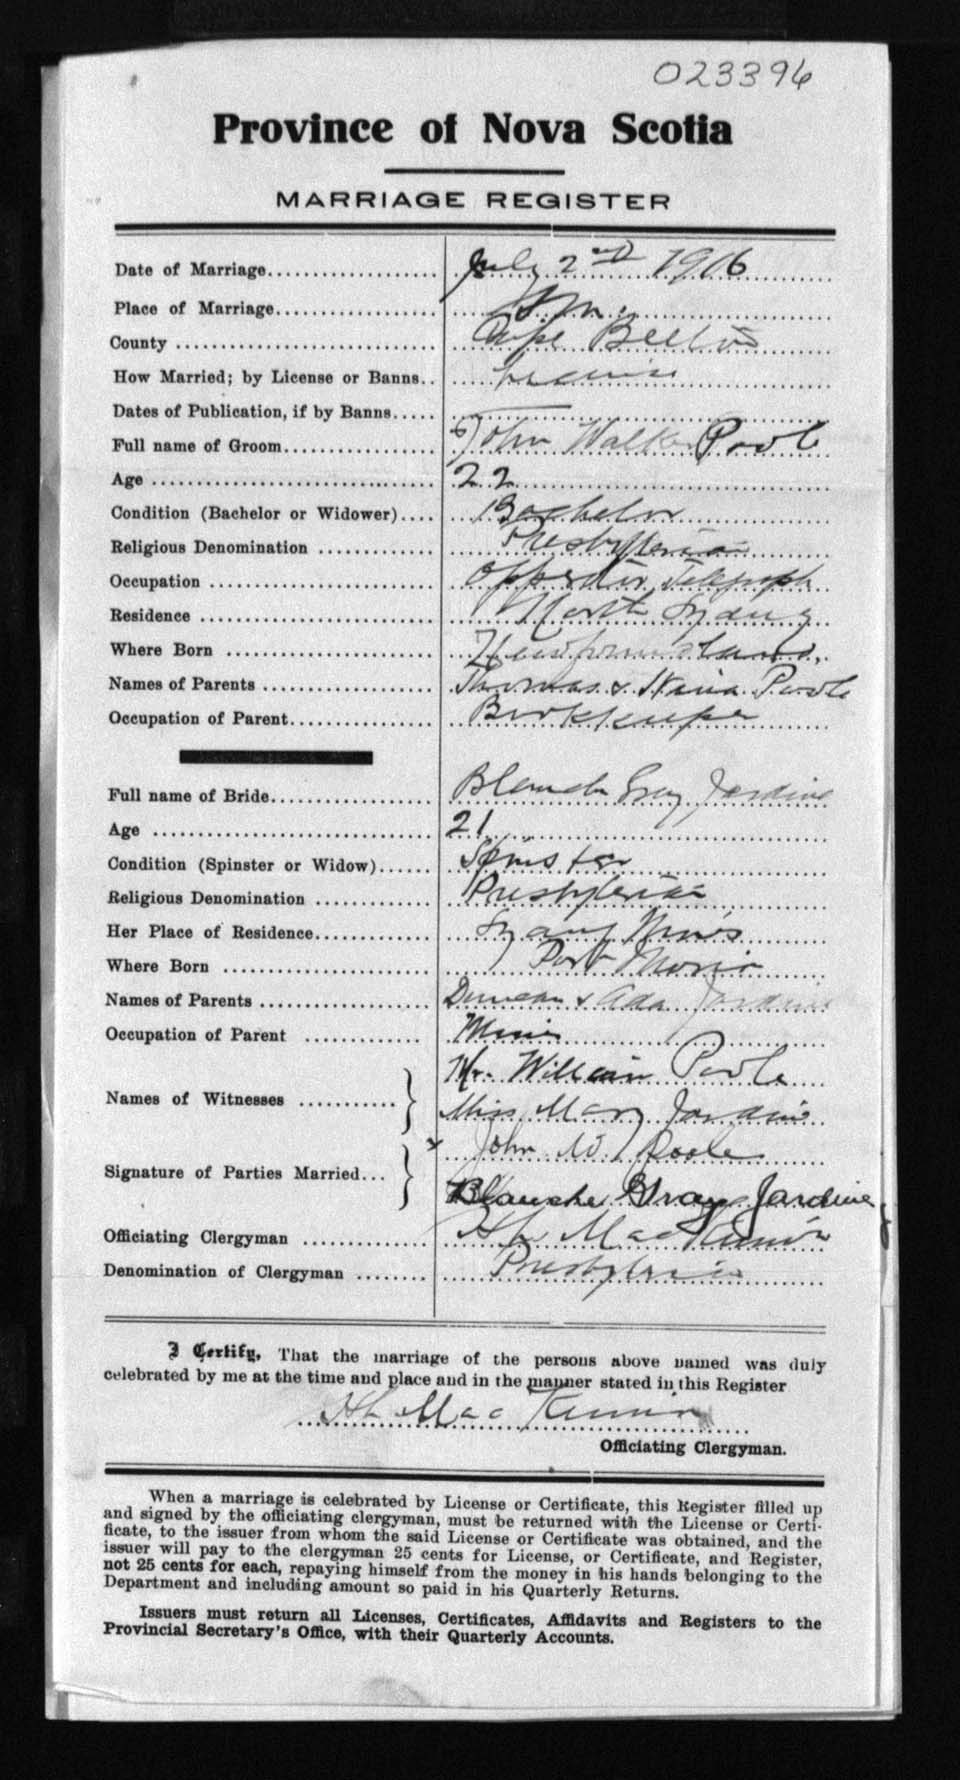 023396
Province of Nova Scotia
MARRIAGE REGISTER
Date of Marriage.................... July 2nd 1916
Place of Marriage................... S. M.
County .............................. Cape Breton
How Married; by License or Banns.. License
Dates of Publication, if by Banns..... —
Full name of Groom.................. John Walker Poole
Age ................................. 22
Condition (Bachelor or Widower).... Bachelor
Religious Denomination .............. Presbyterian
Occupation .......................... Telegraph
Residence ........................... North Sydney
Where Born ......................... Newfoundland.
Names of Parents .................... Thomas & Poole
Occupation of Parent................. Bookkeeper
Full name of Bride................... Blanch Gray Jardine
Age ................................. 21
Condition (Spinster or Widow)...... Spinster
Religious Denomination .............. Presbyterian
Her Place of Residence.............. Sydney Mines
Where Born ......................... Port Morien
Names of Parents .................... Duncan & Ada Jardine
Occupation of Parent .............. Miner
Mr. William Poole
Names of Witnesses ...........
Miss Mary Jardine
x John W. Poole
Signature of Parties Married...
Blanche Gray Jardine
Officiating Clergyman .............. MacKinnon
Denomination of Clergyman ........ Presbyterian
I Certify, That the marriage of the persons above named was duly
celebrated by me at the time and place and in the manner stated in this Register
MacKinnon
Officiating Clergyman.
When a marriage is celebrated by License or Certificate, this Register filled up
and signed by the officiating clergyman, must be returned with the License or Certi-
ficate, to the issuer from whom the said License or Certificate was obtained, and the
issuer will pay to the clergyman 25 cents for License, or Certificate, and Register,
not 25 cents for each, repaying himself from the money in his hands belonging to the
Department and including amount so paid in his Quarterly Returns.
Issuers must return all Licenses, Certificates, Affidavits and Registers to the
Provincial Secretary's Office, with their Quarterly Accounts.